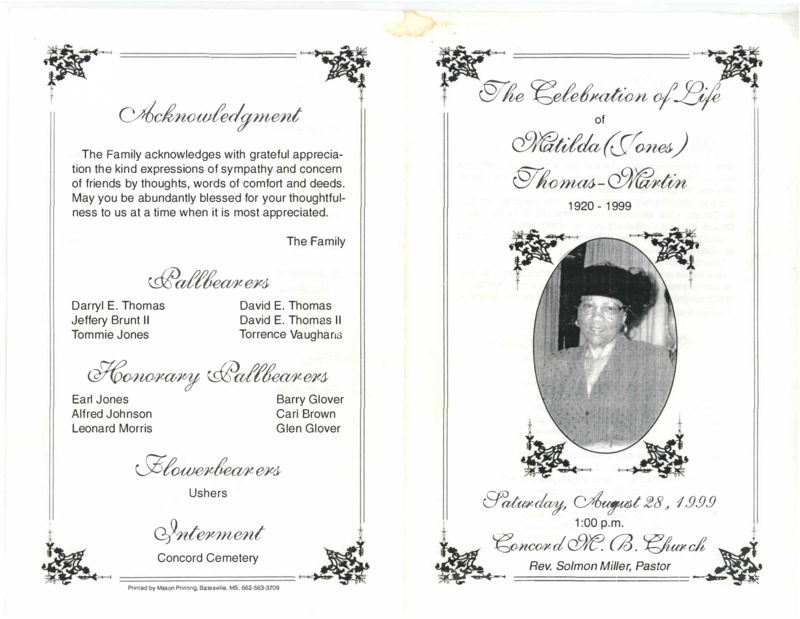 Acknowledgment
The Family acknowledges with grateful apprecia-
tion the kind expressions of sympathy and concern
of friends by thoughts, words of comfort and deeds.
May you be abundantly blessed for your thoughtful-
ness to us at a time when it is most appreciated.
The Family
Pallbearers
Darryl E. Thomas David E. Thomas
Jeffery Brunt II David E. Thomas II
Tommie Jones Torrence Vaughans
Honorary Pallbearers
Earl Jones Barry Glover
Alfred Johnson Carl Brown
Leonard Morris Glen Glover
Flowerbearers
Ushers
Interment
Concord Cemetery
Printed by Mason Printing, Batesville, MS, 662-563-3709
The Celebration of Life
of
Matilda (Jones)
Thomas-Martin
1920 - 1999
Saturday, August 28, 1999
1:00 p.m.
Concord M. B. Church
Rev. Solmon Miller, Pastor